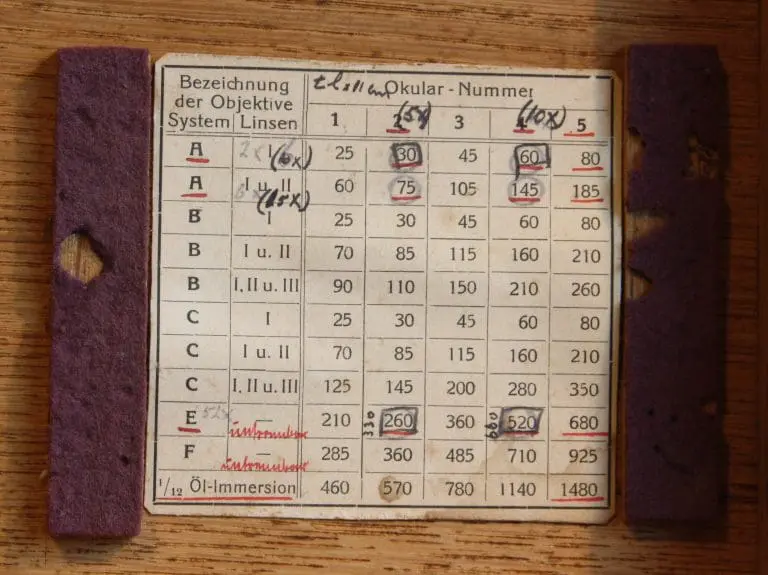 Bezeichnung der Objektive
Okular - Nummer
System Linsen 1 2 (5x) 3 4 (10x) 5
A I (6x) 25 30 45 60 80
A I u. II (15x) 60 75 105 145 185
B I 25 30 45 60 80
B I u. II 70 85 115 160 210
B I, II u. III 90 110 150 210 260
C I 25 30 45 60 80
C I u. II 70 85 115 160 210
C I, II u. III 125 145 200 280 350
E — 210 330 260 360 660 520 680
untrennbar
F — 285 360 485 710 925
untrennbar
1/12 Öl-Immersion 460 570 780 1140 1480